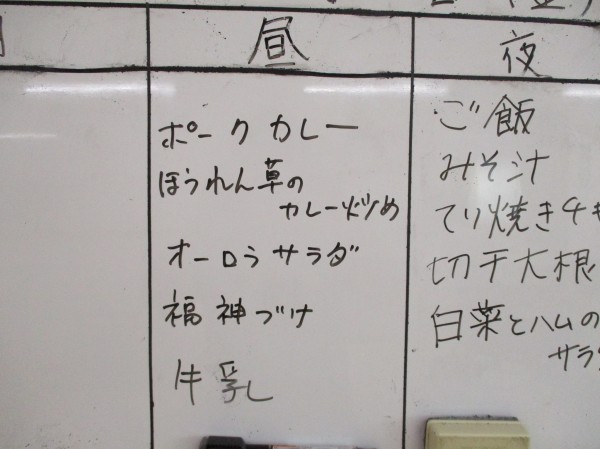 昼
ポークカレー
ほうれん草の
カレー炒め
オーロラサラダ
福神づけ
牛乳
夜
ご飯
みそ汁
てり焼きチキ
切干大根
白菜とハムの
サラダ